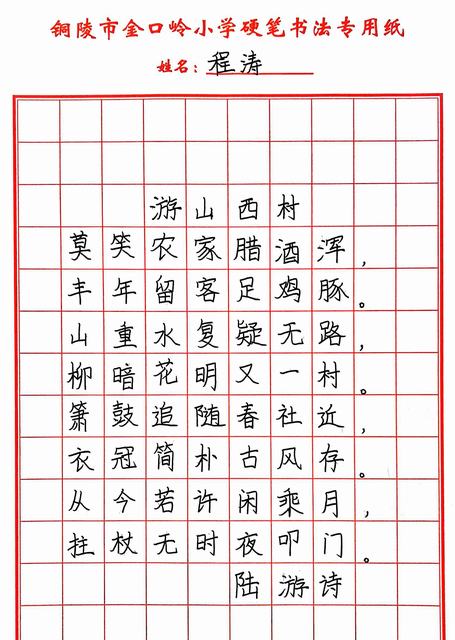 铜陵市金口岭小学硬笔书法专用纸
姓名：程涛
游山西村
莫笑农家腊酒浑，
丰年留客足鸡豚。
山重水复疑无路，
柳暗花明又一村。
箫鼓追随春社近，
衣冠简朴古风存。
从今若许闲乘月，
拄杖无时夜叩门。
陆游诗